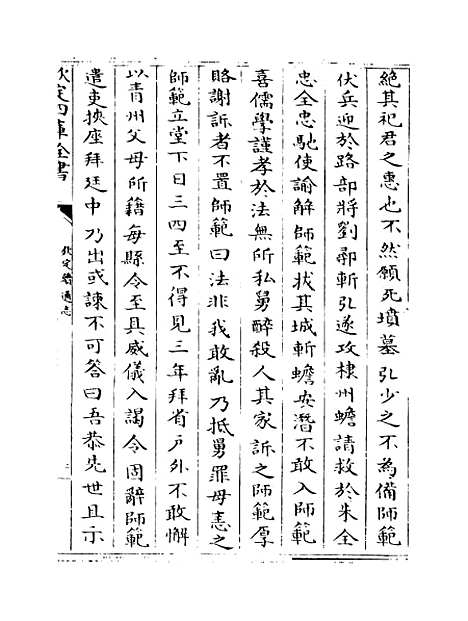 絶其祀君之惠也不然願死墳墓弘少之不為備師範
伏兵迎於路部將劉鄩斬弘遂攻棣州蟾請救於朱全
忠全忠馳使諭解師範拔其城斬蟾安潛不敢入師範
喜儒學謹孝於法無所私舅醉殺人其家訴之師範厚
賂謝訴者不置師範曰法非我敢亂乃抵舅罪母恚之
師範立堂下日三四至不得見三年拜省户外不敢懈
以青州父母所籍每縣令至具威儀入謁令固辭師範
遣吏挾座拜廷中乃出或諫不可答曰吾恭先世且示
欽定四庫全書
欽定續通志
二